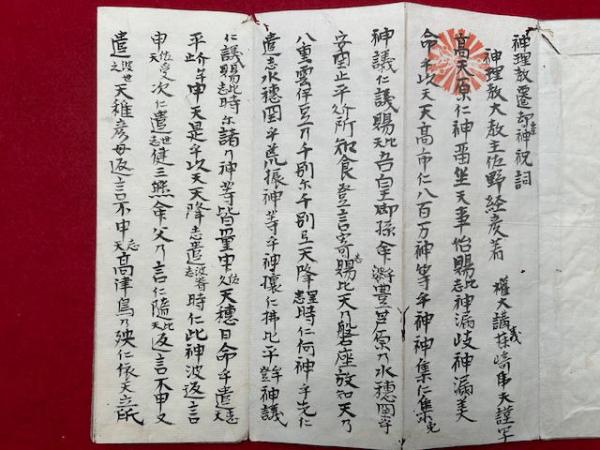 神理教遷却祟神祝詞
神理教大教主佐野経彦著 権大講義
高天原仁神留坐天事始賜比志神漏岐神漏美
命乎以天天高市仁八百万神等乎神集仁集
神議仁議賜比天吾皇御孫命 豊芦原乃水穂国乎
安国止平久所知食登言寄賜比志天乃磐座放知天乃
八重雲伊豆乃千別尓千別弖天降志里時仁何神乎先仁
遣志水穂国乎荒振神等乎神攘仁拂比平登神議
仁議賜比志時尓諸乃神等皆量申佐久天穂日命乎遣志天
平介牟申天是乎以天天降志遣波志時仁此神波返言
申佐受天次仁遣世志健三熊命父乃言仁隨比天返言不申又
遣波世之天稚彦母返言不申志天高津鳥乃殃仁依天立